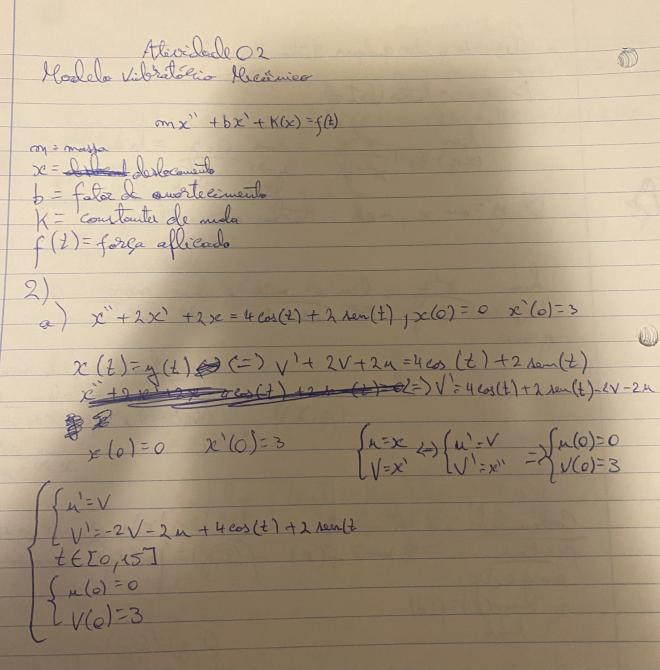 Atividade 02
Modelo Vibratório Mecânico
mx'' + bx' + K(x) = f(t)
m = massa
x = deslocamento
b = fator de amortecimento
K = constante de mola
f(t) = força aplicado
2)
a) x'' + 2x' + 2x = 4cos(t) + 2 sen(t), x(0) = 0 x'(0) = 3
x(t) = y(t) (=) V' + 2V + 2u = 4cos(t) + 2 sen(t)
x'' + 2x' + 2x = 4cos(t) + 2 sen(t) (=) V' = 4cos(t) + 2 sen(t) - 2V - 2u
x(0) = 0 x'(0) = 3 { u = x <-> { u' = V => { u(0) = 0
V = x' V' = x'' V(0) = 3
{ { u' = V
V' = -2V - 2u + 4cos(t) + 2 sen(t
t ∈ [0, 15]
{ u(0) = 0
V(0) = 3